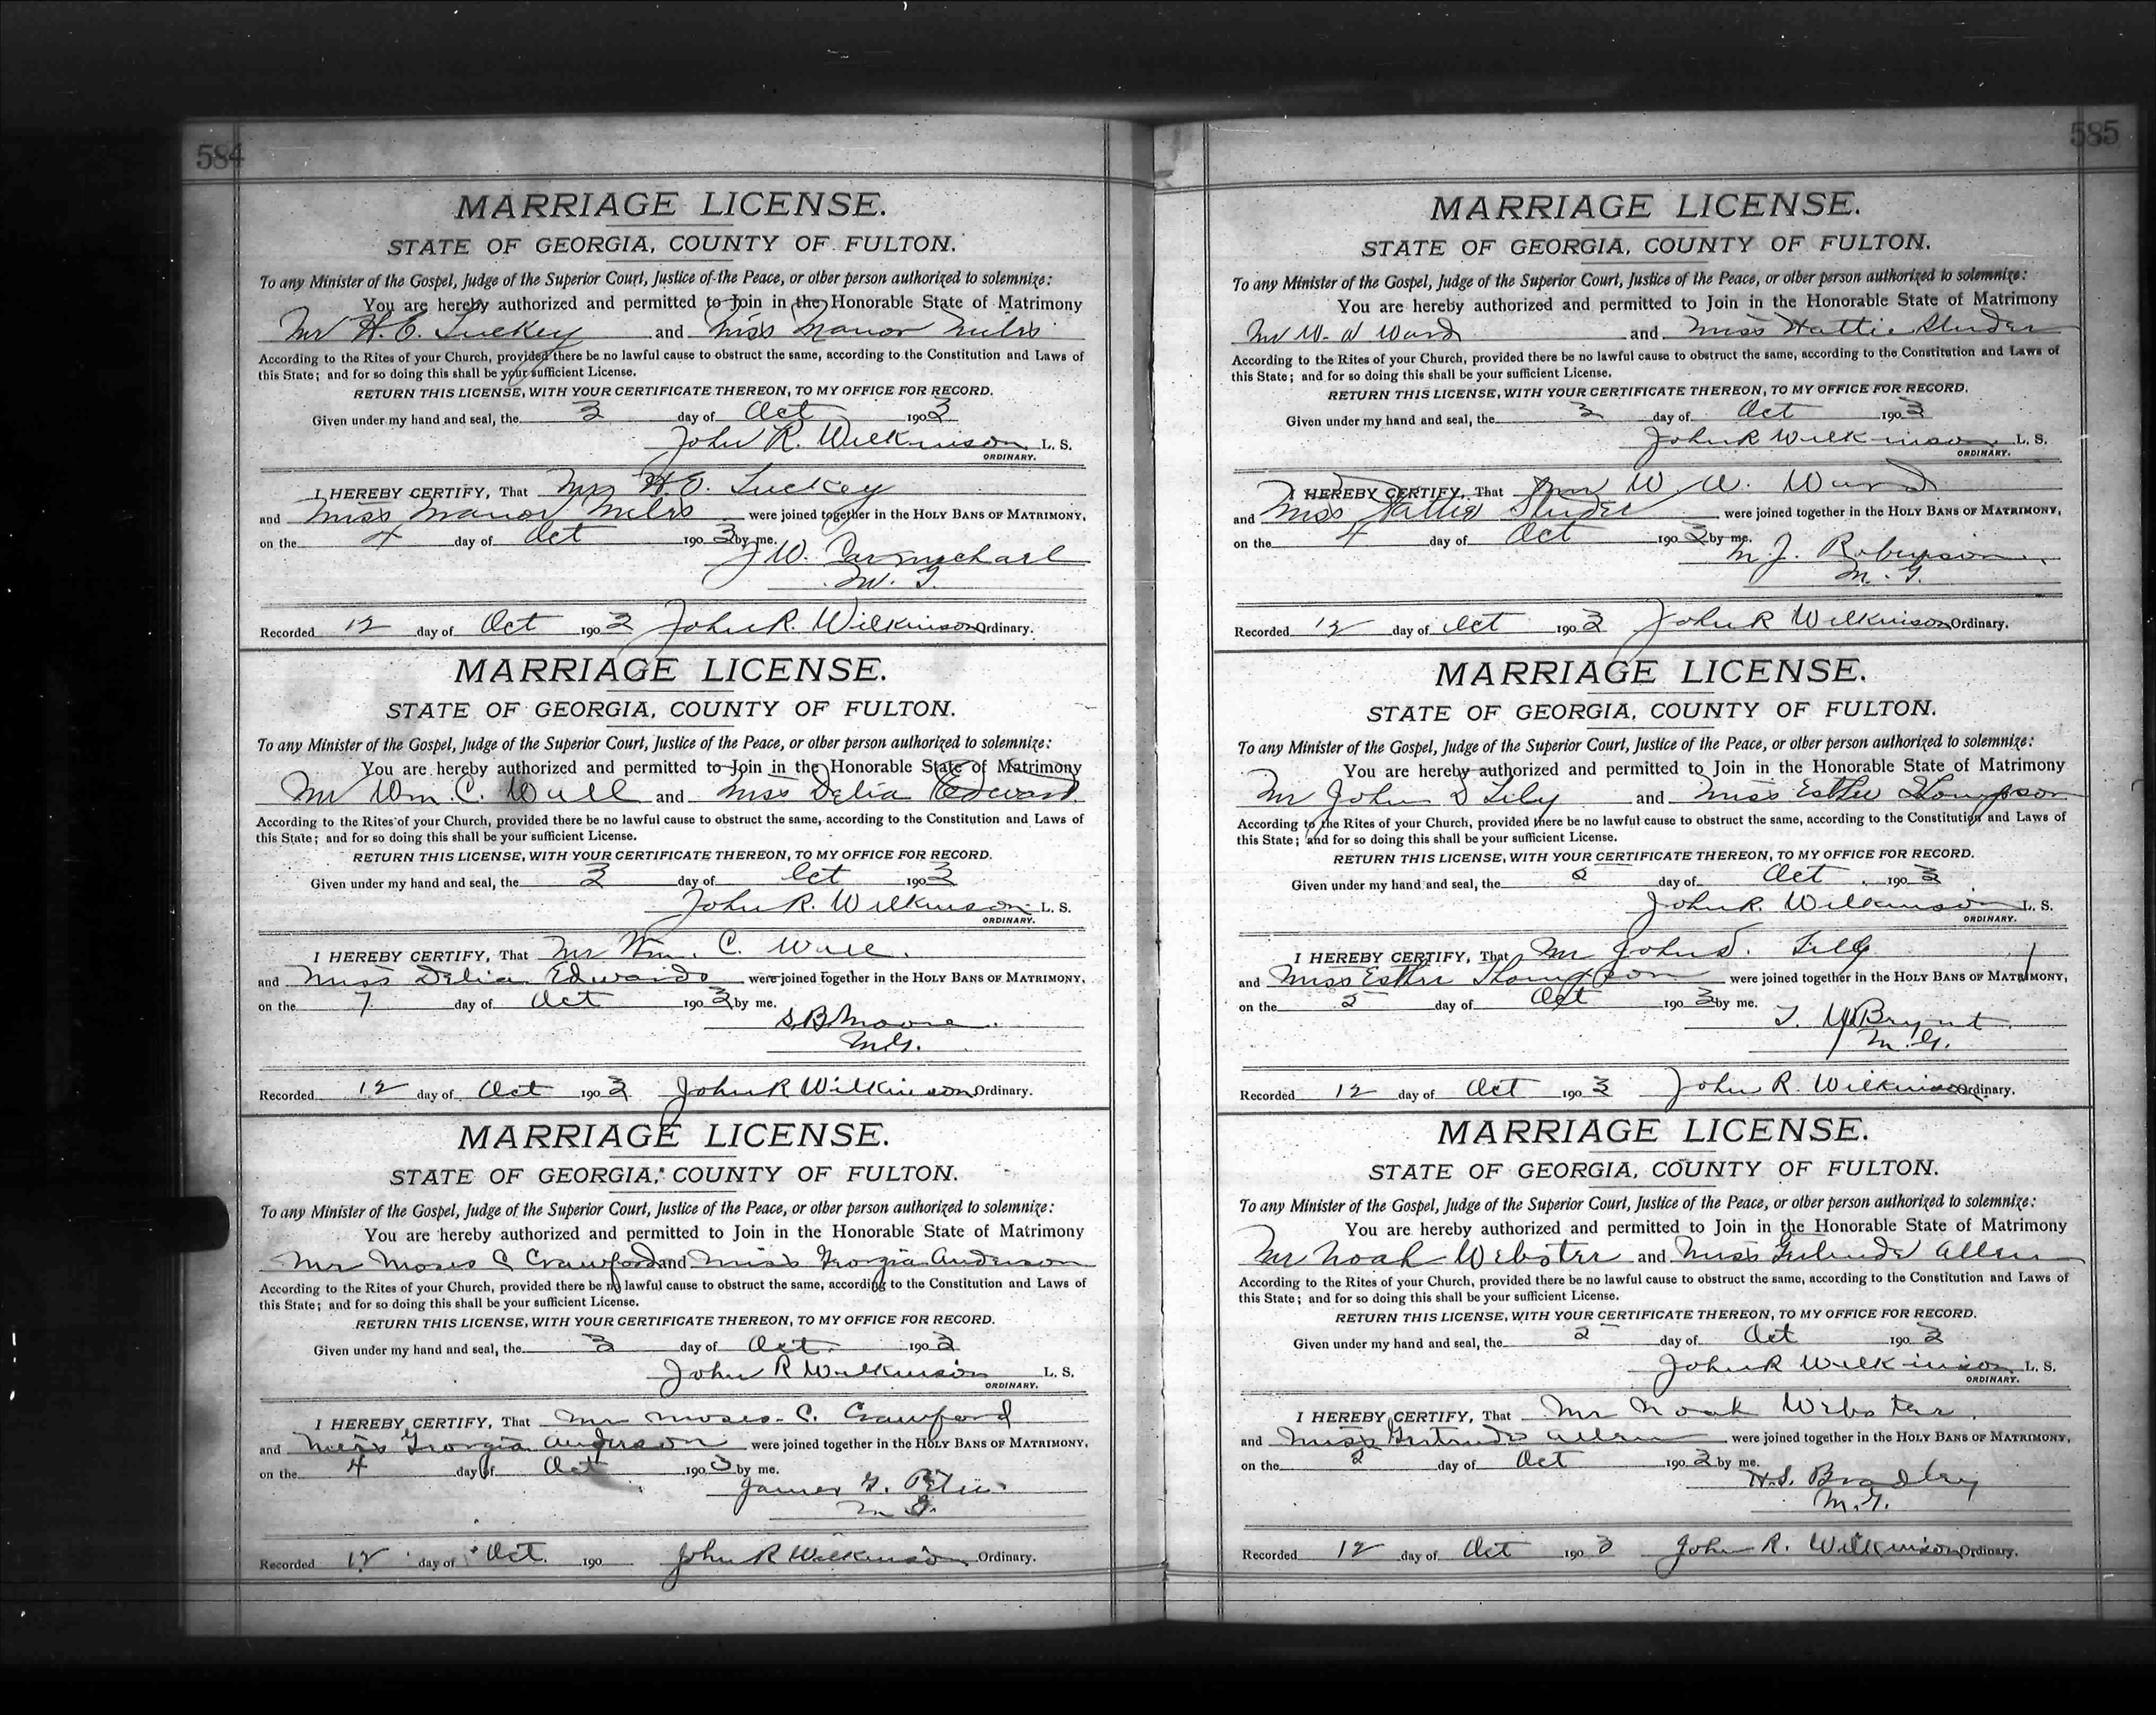 584
MARRIAGE LICENSE.
STATE OF GEORGIA, COUNTY OF FULTON.
To any Minister of the Gospel, Judge of the Superior Court, Justice of the Peace, or other person authorized to solemnize:
You are hereby authorized and permitted to Join in the Honorable State of Matrimony
Mr H. E. Luckey and Miss Manor
According to the Rites of your Church, provided there be no lawful cause to obstruct the same, according to the Constitution and Laws of
this State; and for so doing this shall be your sufficient License.
RETURN THIS LICENSE, WITH YOUR CERTIFICATE THEREON, TO MY OFFICE FOR RECORD.
Given under my hand and seal, the 3 day of Oct 1903
John R. Wilkinson L. S.
ORDINARY.
I HEREBY CERTIFY, That Mr H. E. Luckey
and Miss Manor were joined together in the HOLY BANS OF MATRIMONY,
on the 4 day of Oct 1903 by me.
J. W. Carmichael
M. G.
Recorded 12 day of Oct 1903 John R. Wilkinson Ordinary.
MARRIAGE LICENSE.
STATE OF GEORGIA, COUNTY OF FULTON.
To any Minister of the Gospel, Judge of the Superior Court, Justice of the Peace, or other person authorized to solemnize:
You are hereby authorized and permitted to Join in the Honorable State of Matrimony
Mr Wm. C. Wall and Miss Delia Edward
According to the Rites of your Church, provided there be no lawful cause to obstruct the same, according to the Constitution and Laws of
this State; and for so doing this shall be your sufficient License.
RETURN THIS LICENSE, WITH YOUR CERTIFICATE THEREON, TO MY OFFICE FOR RECORD.
Given under my hand and seal, the 3 day of Oct 1903
John R. Wilkinson L. S.
ORDINARY.
I HEREBY CERTIFY, That Mr Wm. C. Wall.
and Miss Delia Edwards were joined together in the HOLY BANS OF MATRIMONY,
on the 7 day of Oct 1903 by me.
S. B. Moore
M. G.
Recorded 12 day of Oct 1903 John R Wilkinson Ordinary.
MARRIAGE LICENSE.
STATE OF GEORGIA, COUNTY OF FULTON.
To any Minister of the Gospel, Judge of the Superior Court, Justice of the Peace, or other person authorized to solemnize:
You are hereby authorized and permitted to Join in the Honorable State of Matrimony
Mr Moses C Crawford and Miss Georgia Anderson
According to the Rites of your Church, provided there be no lawful cause to obstruct the same, according to the Constitution and Laws of
this State; and for so doing this shall be your sufficient License.
RETURN THIS LICENSE, WITH YOUR CERTIFICATE THEREON, TO MY OFFICE FOR RECORD.
Given under my hand and seal, the 3 day of Oct. 1903
John R Wilkinson L. S.
ORDINARY.
I HEREBY CERTIFY, That Mr Moses. C. Crawford
and Miss Georgia Anderson were joined together in the HOLY BANS OF MATRIMONY,
on the 4 day of Oct 1903 by me.
James G.
M. G.
Recorded 12 day of Oct. 190 John R Wilkinson Ordinary.
585
MARRIAGE LICENSE.
STATE OF GEORGIA, COUNTY OF FULTON.
To any Minister of the Gospel, Judge of the Superior Court, Justice of the Peace, or other person authorized to solemnize:
You are hereby authorized and permitted to Join in the Honorable State of Matrimony
Mr W. Ward and Miss Hattie
According to the Rites of your Church, provided there be no lawful cause to obstruct the same, according to the Constitution and Laws of
this State; and for so doing this shall be your sufficient License.
RETURN THIS LICENSE, WITH YOUR CERTIFICATE THEREON, TO MY OFFICE FOR RECORD.
Given under my hand and seal, the 3 day of Oct 1903
John R Wilkinson L. S.
ORDINARY.
I HEREBY CERTIFY, That Mr W. Ward
and Miss Hattie were joined together in the HOLY BANS OF MATRIMONY,
on the 4 day of Oct 1903 by me.
M. J. Robinson
M. G.
Recorded 12 day of Oct 1903 John R Wilkinson Ordinary.
MARRIAGE LICENSE.
STATE OF GEORGIA, COUNTY OF FULTON.
To any Minister of the Gospel, Judge of the Superior Court, Justice of the Peace, or other person authorized to solemnize:
You are hereby authorized and permitted to Join in the Honorable State of Matrimony
Mr John D and Miss Esther Thompson
According to the Rites of your Church, provided there be no lawful cause to obstruct the same, according to the Constitution and Laws of
this State; and for so doing this shall be your sufficient License.
RETURN THIS LICENSE, WITH YOUR CERTIFICATE THEREON, TO MY OFFICE FOR RECORD.
Given under my hand and seal, the day of Oct 1903
John R. Wilkinson L. S.
ORDINARY.
I HEREBY CERTIFY, That Mr John
and Miss Esther Thompson were joined together in the HOLY BANS OF MATRIMONY,
on the day of Oct 1903 by me.
Bryant
M. G.
Recorded 12 day of Oct 1903 John R. Wilkinson Ordinary.
MARRIAGE LICENSE.
STATE OF GEORGIA, COUNTY OF FULTON.
To any Minister of the Gospel, Judge of the Superior Court, Justice of the Peace, or other person authorized to solemnize:
You are hereby authorized and permitted to Join in the Honorable State of Matrimony
Mr Noah Webster and Miss Gertrude Allen
According to the Rites of your Church, provided there be no lawful cause to obstruct the same, according to the Constitution and Laws of
this State; and for so doing this shall be your sufficient License.
RETURN THIS LICENSE, WITH YOUR CERTIFICATE THEREON, TO MY OFFICE FOR RECORD.
Given under my hand and seal, the day of Oct 1903
John R Wilkinson L. S.
ORDINARY.
I HEREBY CERTIFY, That Mr Noah Webster.
and Miss Gertrude Allen were joined together in the HOLY BANS OF MATRIMONY,
on the day of Oct 1903 by me.
H. S. Bradley
M. G.
Recorded 12 day of Oct 1903 John R. Wilkinson Ordinary.